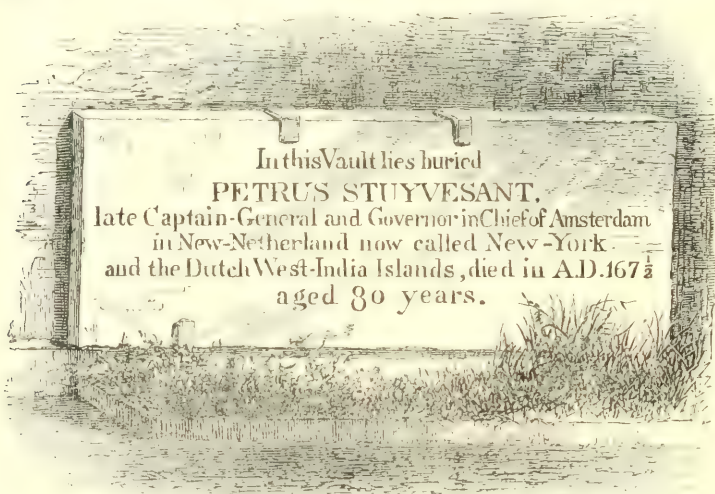 In this Vault lies buried
PETRUS STUYVESANT,
late Captain-General and Governor in Chief of Amsterdam
in New-Netherland now called New-York
and the Dutch West-India Islands, died in A.D. 167½
aged 80 years.